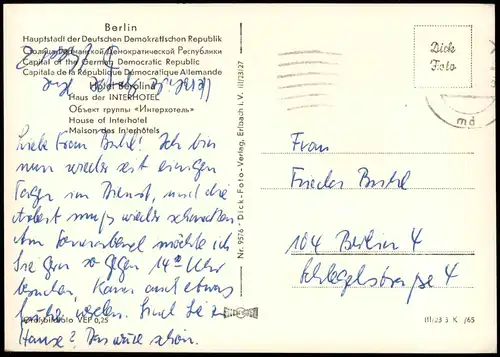 Berlin
Hauptstadt der Deutschen Demokratischen Republik
Столица Германской Демократической Республики
Capital of the German Democratic Republic
Capitale de la République Démocratique Allemande
Hotel Berolina
Haus der INTERHOTEL
Объект группы «Интерхотель»
House of Interhotel
Maison des Interhôtels
Liebe Frau Buhl! Ich bin
nun wieder seit einigen
Tagen im Dienst, und die
Arbeit muß wieder
Am Sonnabend möchte ich
Sie gern so gegen 14 Uhr
besuchen, kann auch etwas
später werden. Sind Sie zu
Hause? Das wäre schön.
Echt Foto VEP 0,25
Nr. 9576 · Dick-Foto-Verlag, Erlbach i. V. III/23/27
Dick
Foto
md
Frau
Frieda Buhl
104 Berlin 4
Schlegelstraße 4
III/23 3 K /65